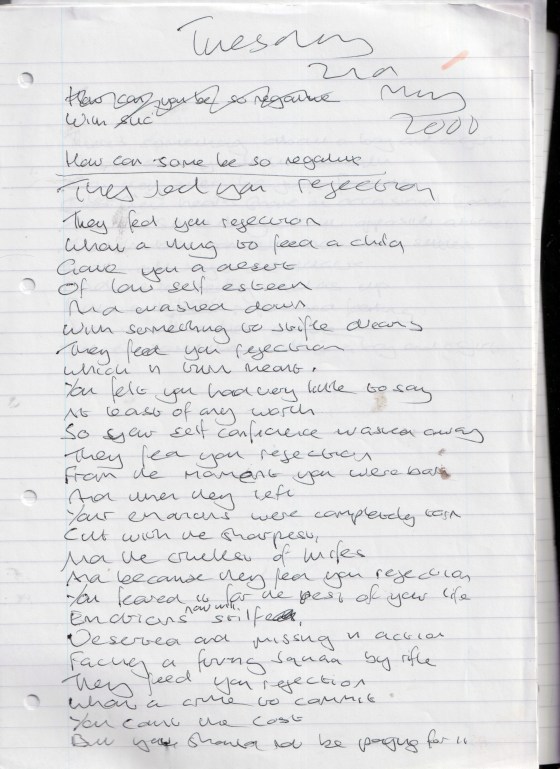 Tuesday
2nd
May
2000
How can you be so negative
With suc
How can some be so negative
They fed you rejection
They fed you rejection
What a thing to feed a child
Gave you a desert
Of low self esteem
And washed down
With something to stifle dreams
They feed you rejection
Which in turn meant.
You felt you had very little to say
At least of any worth
So your self confidence washed away
They fed you rejection
From the moment you were born
And when they left
Your emotions were completely torn
Cut with the sharpest,
And the cruelest of knifes
And because they fed you rejection
You feared it for the rest of your life
Emotions now will stifle,
Deserted and missing in action
Facing a firing squad by rifle
They feed you rejection
What a crime to commit
You count the cost
But you should not be paying for it